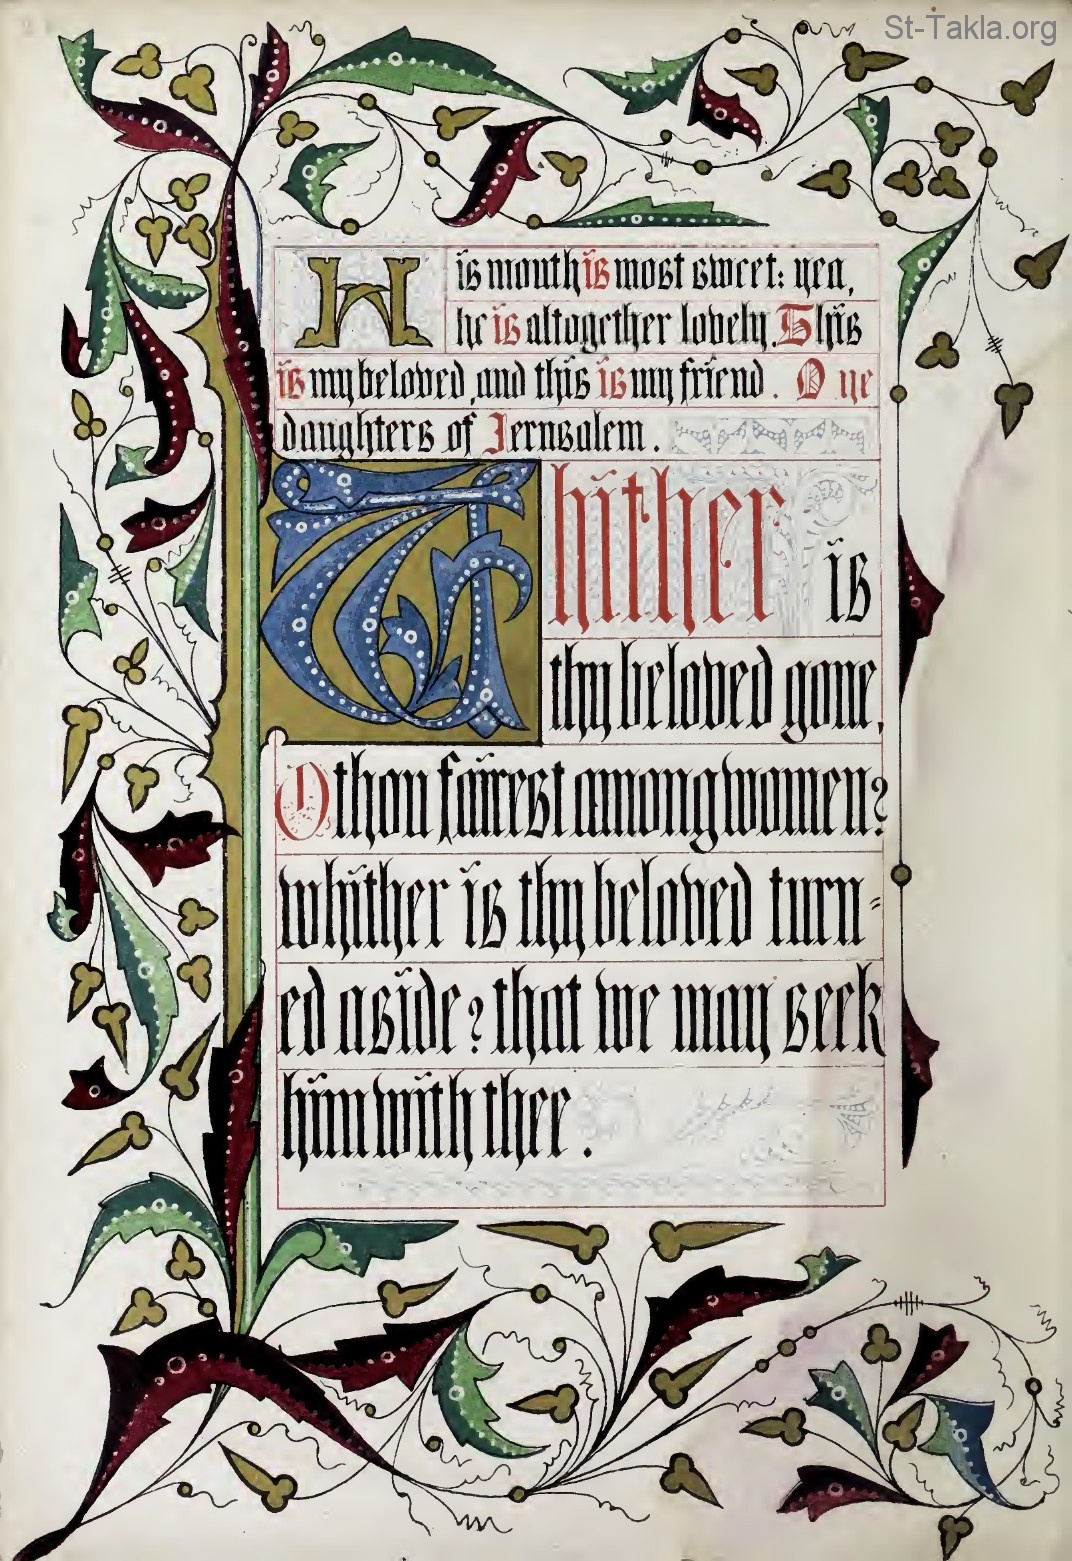 St-Takla.org
His mouth is most sweet: yea,
he is altogether lovely. This
is my beloved, and this is my friend. O ye
daughters of Jerusalem.
Whither is
thy beloved gone,
O thou fairest among women?
whither is thy beloved turn=
ed aside? that we may seek
him with thee.